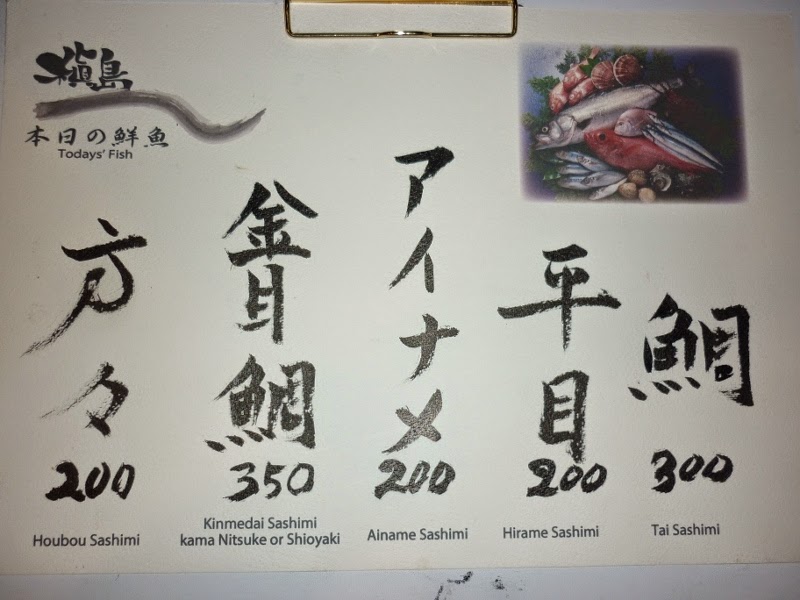 槇島
本日の鮮魚
Todays' Fish
鯛
300
Tai Sashimi
平目
200
Hirame Sashimi
アイナメ
200
Ainame Sashimi
金目鯛
350
Kinmedai Sashimi
kama Nitsuke or Shioyaki
方々
200
Houbou Sashimi